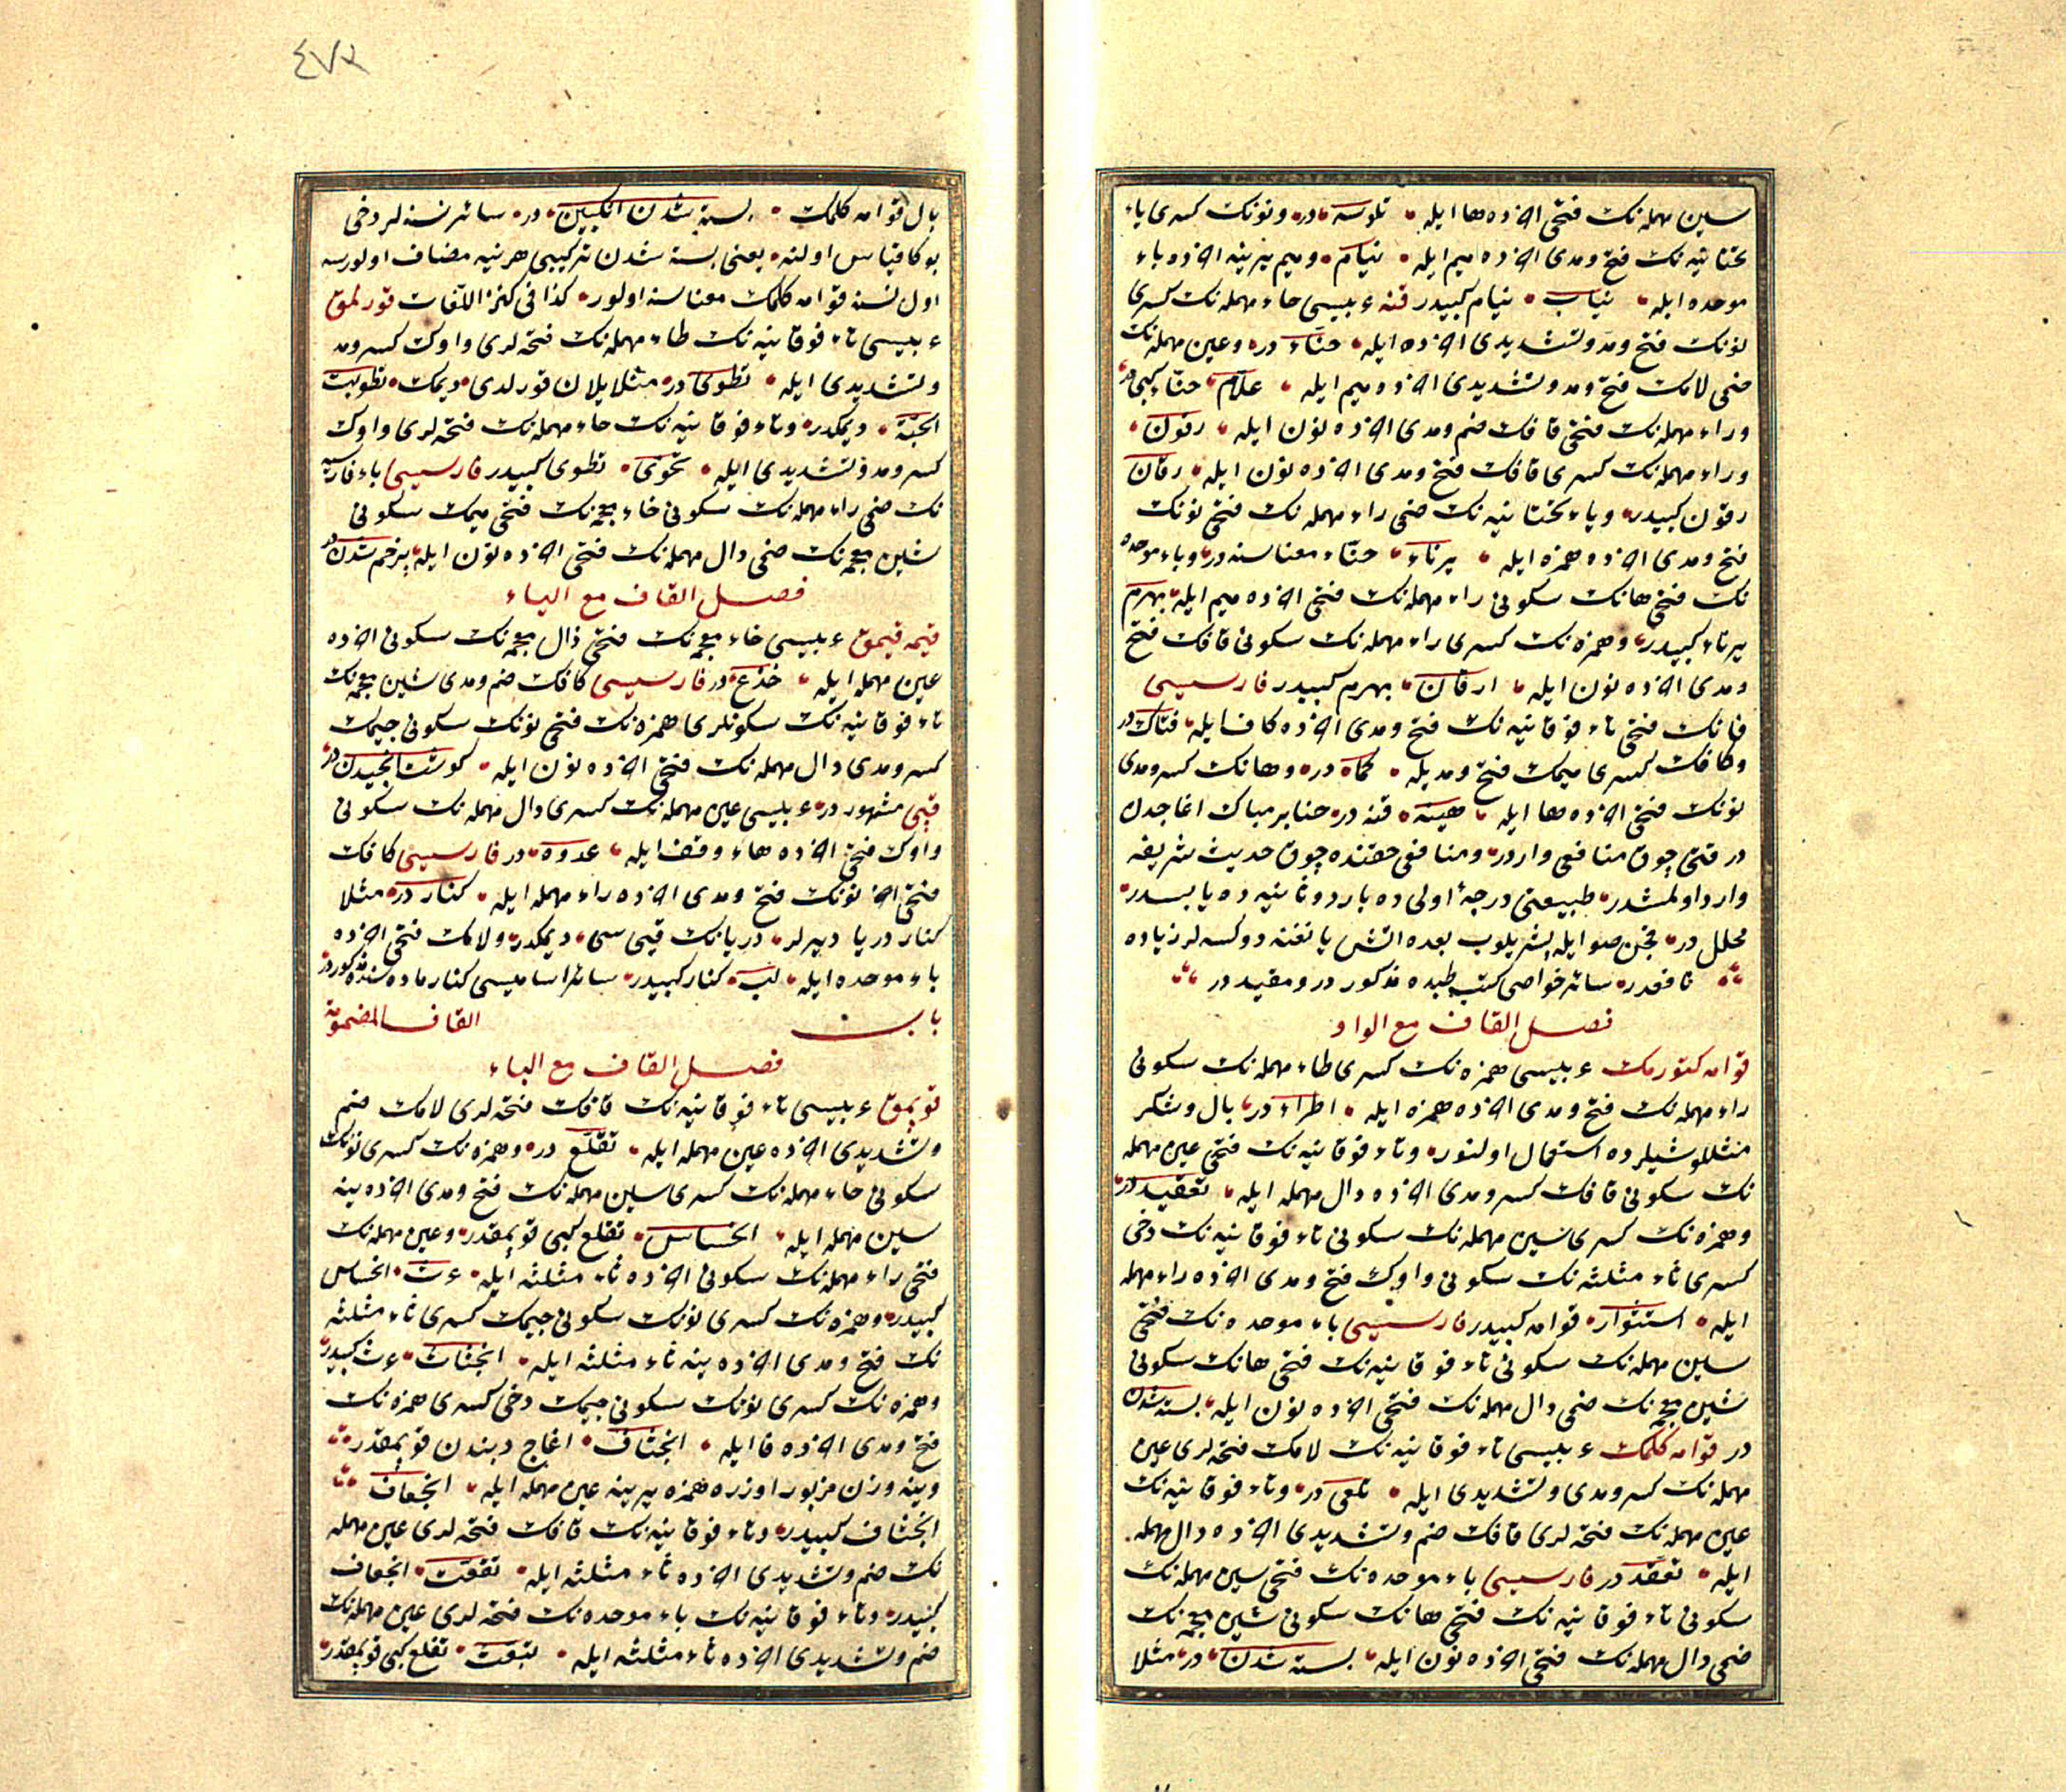 سین مهمله‌نك فتحی آخرده ها ایله تلوسه در ونونك کسری یاء
تحتانیه‌نك فتح ومدی آخرده میم ایله نیام ومیم یرینه آخرده باء
موحده ایله نیاب نیام کبیدر قنه عربیسی حاء مهمله‌نك کسری
نونك فتح ومد وتشدیدی آخرده ایله حنّاء در وعین مهمله‌نك
ضمی لامك فتح ومد وتشدیدی آخرده میم ایله علّام حنّاء کبی در
وراء مهمله‌نك فتحی قافك ضم ومدی آخرده نون ایله رقون
وراء مهمله‌نك کسری قافك فتح ومدی آخرده نون ایله رقان
رقون کبیدر ویاء تحتانیه‌نك ضمی راء مهمله‌نك فتحی نونك
فتح ومدی آخرده همزه ایله یرناء حنّاء معناسنه در وباء موحده
نك فتحی هانك سکونی راء مهمله‌نك فتحی آخرده میم ایله بهرم
یرناء کبیدر وهمزه‌نك کسری راء مهمله‌نك سکونی قافك فتح
ومدی آخرده نون ایله ارقان بهرم کبیدر فارسیسی
فانك فتحی تاء فوقانیه‌نك فتح ومدی آخرده کاف ایله فتاك در
وکافك کسری میمك فتح ومدیله کماه در وهانك کسر ومدی
نونك فتحی آخرده ها ایله هینه قنه در حنا بر مبارك اغاجدن
در قتی چوق منافعی واردر ومنافعی حقنده چوق حدیث شریفه
وارد اولمشدر طبیعتی درجهٔ اولی ده بارد وثانیه ده یابسدر
محلل در صو ایله پشریلوب بعده اتش یانغنه دوکسه‌لر زیاده
نافعدر سائر خواصی کتب طبده مذکور در ومقیددر
فصل القاف مع الواو
قوامه کتورمك عربیسی همزه‌نك کسری طاء مهمله‌نك سکونی
راء مهمله‌نك فتح ومدی آخرده همزه ایله اطراء در بال وشکر
مثللو شیلرده استعمال اولنور وتاء فوقانیه‌نك فتحی عین مهمله
نك سکونی قافك کسر ومدی آخرده دال مهمله ایله تعقید در
وهمزه‌نك کسری سین مهمله‌نك سکونی تاء فوقانیه‌نك دخی
کسری ثاء مثلثه‌نك سکونی واوك فتح ومدی آخرده راء مهمله
ایله استثوار قوامه کبیدر فارسیسی باء موحده‌نك فتحی
سین مهمله‌نك سکونی تاء فوقانیه‌نك فتحی هانك سکونی
شین معجمه‌نك ضمی دال مهمله‌نك فتحی آخرده نون ایله بسته شدن
در قوامه کلمك عربیسی تاء فوقانیه‌نك لامك فتحه‌لری عین
مهمله‌نك کسر ومدی وتشدیدی ایله تلعی در وتاء فوقانیه‌نك
عین مهمله‌نك فتحه‌لری قافك ضم وتشدیدی آخرده دال مهمله
ایله تعقّد در فارسیسی باء موحده‌نك فتحی سین مهمله‌نك
سکونی تاء فوقانیه‌نك فتحی هانك سکونی شین معجمه‌نك
ضمی دال مهمله‌نك فتحی آخرده نون ایله بسته شدن در مثلا
٤٧٢
بال قوامه کلمك بسته شدن انکبین در سائر نسنه‌لر دخی
بوکا قیاس اولنه یعنی بسته شدن ترکیبی هر نیه مضاف اولورسه
اول نسنه قوامه کلمك معناسنه اولور کذا فی کنز اللغات قورلمق
عربیسی تاء فوقانیه‌نك طاء مهمله‌نك فتحه‌لری واوك کسر ومد
وتشدیدی ایله تطوّی در مثلا یلان قورلدی دیمك تطوّیت
الحیّة دیمکدر وتاء فوقانیه‌نك حاء مهمله‌نك فتحه‌لری واوك
کسر ومد وتشدیدی ایله تحوّی تطوی کبیدر فارسیسی باء فارسیه
نك ضمی راء مهمله‌نك سکونی خاء معجمه‌نك فتحی میمك سکونی
شین معجمه‌نك ضمی دال مهمله‌نك فتحی آخرده نون ایله پرخم شدن در
فصل القاف مع الیاء
قیمه قیمق عربیسی خاء معجمه‌نك فتحی ذال معجمه‌نك سکونی آخرده
عین مهمله ایله خذع در فارسیسی کافك ضم ومدی شین معجمه‌نك
تاء فوقانیه‌نك سکونلری همزه‌نك فتحی نونك سکونی جیمك
کسر ومدی دال مهمله‌نك فتحی آخرده نون ایله کوشت انجیدن در
قیی مشهور در عربیسی عین مهمله‌نك کسری دال مهمله‌نك سکونی
واوك فتحی آخرده هاء وقف ایله عدوه در فارسیسی کافك
فتحی آخر نونك فتح ومدی آخرده راء مهمله ایله کنار در مثلا
کنار دریا دیرلر دریانك قییسی دیمکدر ولامك فتحی آخرده
باء موحده ایله لب کنار کبیدر سائر اسامیسی کنار ماده‌سنده مذکور در
باب القاف المضمومة
فصل القاف مع الباء
قوپمق عربیسی تاء فوقانیه‌نك قافك فتحه‌لری لامك ضم
وتشدیدی آخرده عین مهمله ایله تقلّع در وهمزه‌نك کسری نونك
سکونی حاء مهمله‌نك کسری سین مهمله‌نك فتح ومدی آخرده ینه
سین مهمله ایله انحساس تقلع کبی قوپمقدر وعین مهمله‌نك
فتحی راء مهمله‌نك سکونی آخرده ثاء مثلثه ایله عرث انحساس
کبیدر وهمزه‌نك کسری نونك سکونی جیمك کسری ثاء مثلثه
نك فتح ومدی آخرده ینه ثاء مثلثه ایله انجثاث عرث کبیدر
وهمزه‌نك کسری نونك سکونی جیمك دخی کسری همزه‌نك
فتح ومدی آخرده فا ایله انجئاف اغاج دیبندن قوپمقدر
وینه وزن مزبور اوزره همزه یرینه عین مهمله ایله انجعاف
انجئاف کبیدر وتاء فوقانیه‌نك قافك فتحه‌لری عین مهمله
نك ضم وتشدیدی آخرده ثاء مثلثه ایله تقعّث انجعاف
کبیدر وتاء فوقانیه‌نك باء موحده‌نك فتحه‌لری عین مهمله‌نك
ضم وتشدیدی آخرده ثاء مثلثه ایله تقلع کبی قوپمقدر